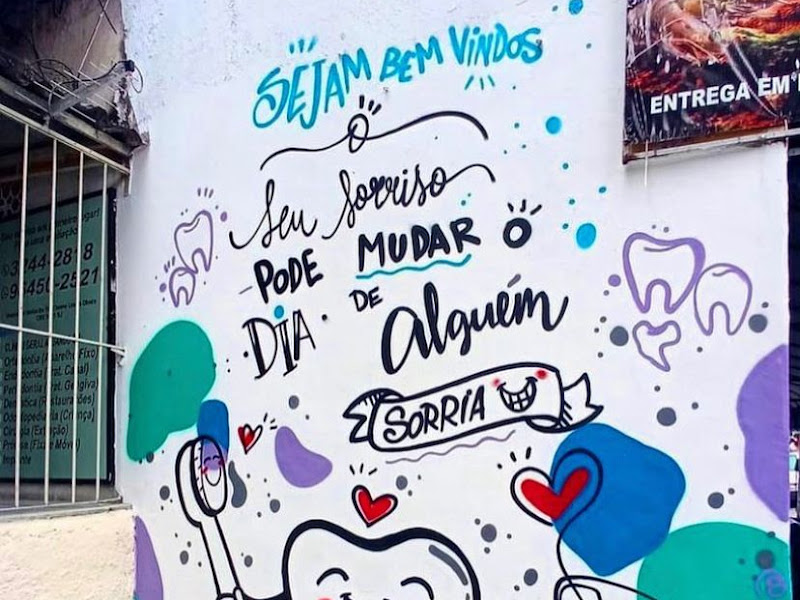 SEJAM BEM VINDOS
Seu Sorriso
PODE MUDAR O
DIA DE Alguém
SORRIA
ENTREGA EM
3744-2818
96450-2521
Ortodontia (Aparelho Fixo)
Endodontia (Trat. Canal)
Periodontia (Trat. Gengiva)
Dentística (Restaurações)
Odontopediatria (Criança)
Cirurgia (Extração)
Prótese (Fixa e Móvel)
Implante